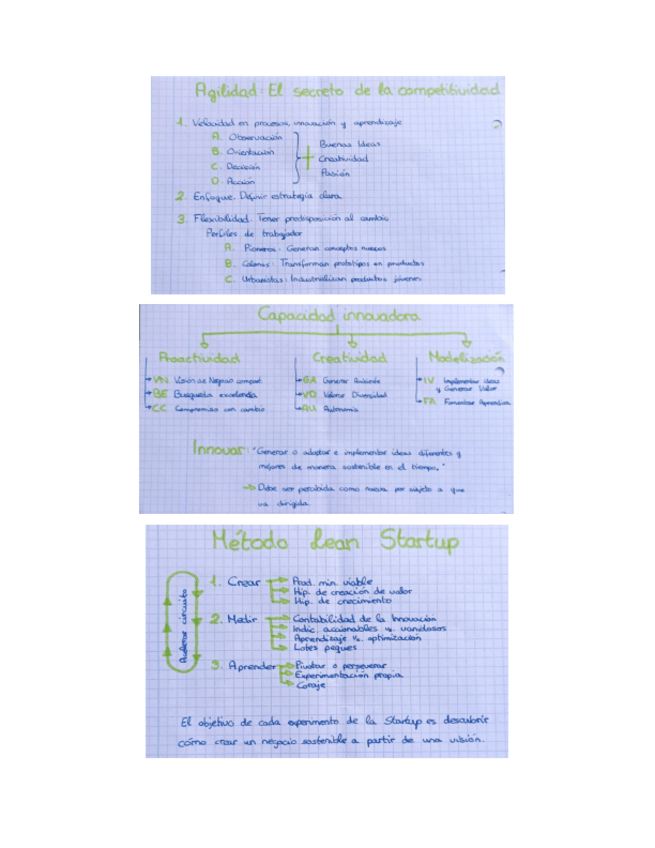 Agilidad: El secreto de la competitividad
1. Velocidad en procesos, innovación y aprendizaje
A. Observación
B. Orientación
C. Decisión
D. Acción
+
Buenas Ideas
Creatividad
Pasión
2. Enfoque. Definir estrategia clara.
3. Flexibilidad. Tener predisposición al cambio
Perfiles de trabajador
A. Pioneros: Generan conceptos nuevos
B. Colonos: Transforman prototipos en productos
C. Urbanistas: Industrializan productos jóvenes
Capacidad innovadora
Proactividad
VN Visión de Negocio compart.
BE Búsqueda excelencia
CC Compromiso con cambio
Creatividad
GA Generar Ambiente
VD Valorar Diversidad
AU Autonomía
Modelización
IV Implementar ideas
y Generar Valor
FA Fomentar Aprendiza.
Innovar: "Generar o adoptar e implementar ideas diferentes y
mejores de manera sostenible en el tiempo."
→ Debe ser percibida como nueva por sujeto a que
va dirigida.
Método Lean Startup
Acelerar circuito
1. Crear
Prod. min. viable
Hip. de creación de valor
Hip. de crecimiento
2. Medir
Contabilidad de la Innovación
Indic. accionables vs. vanidosos
Aprendizaje vs. optimización
Lotes peques
3. Aprender
Pivotar o perseverar
Experimentación propia
Coraje
El objetivo de cada experimento de la Startup es descubrir
cómo crear un negocio sostenible a partir de una visión.